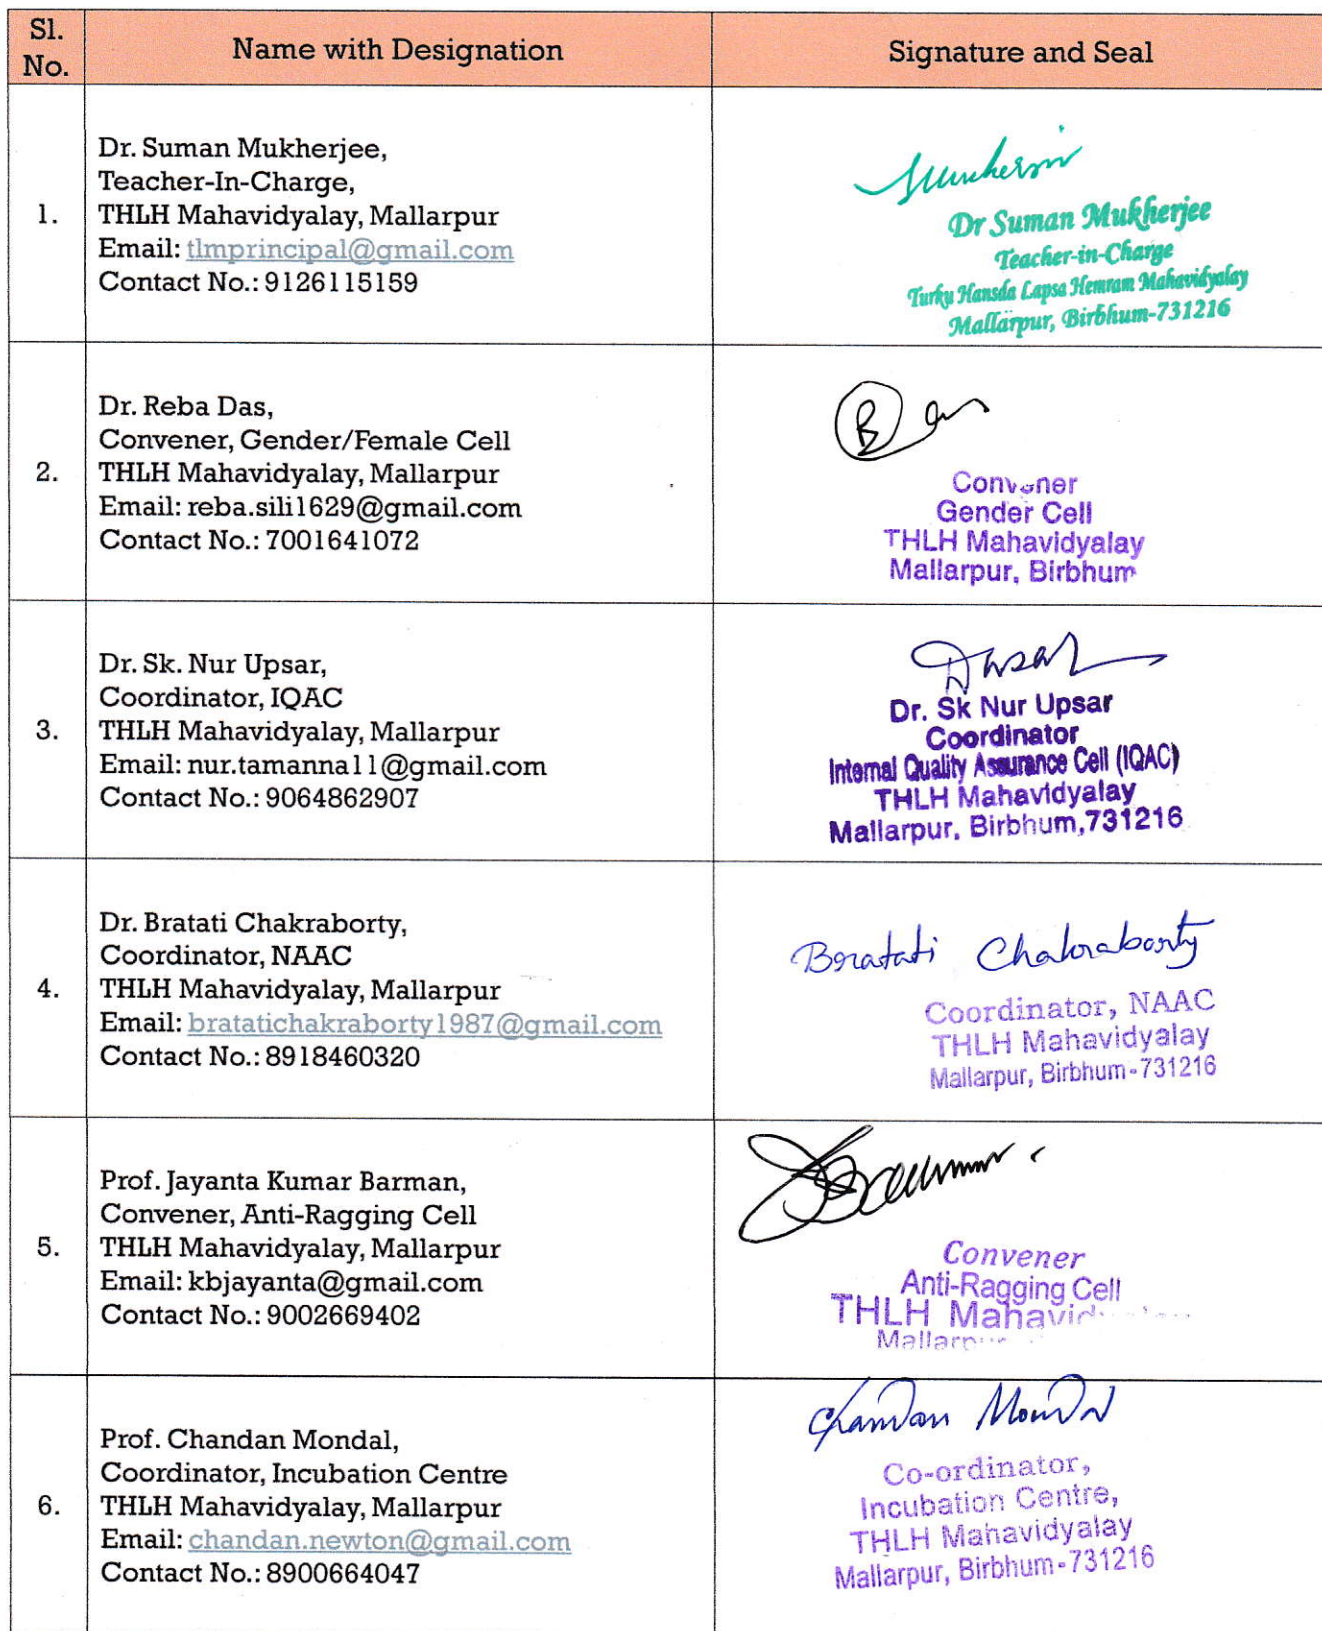 Sl. No.
Name with Designation
Signature and Seal
1.
Dr. Suman Mukherjee,
Teacher-In-Charge,
THLH Mahavidyalay, Mallarpur
Email: tlmprincipal@gmail.com
Contact No.: 9126115159
Dr Suman Mukherjee
Teacher-in-Charge
Turku Hansda Lapsa Hemram Mahavidyalay
Mallarpur, Birbhum-731216
2.
Dr. Reba Das,
Convener, Gender/Female Cell
THLH Mahavidyalay, Mallarpur
Email: reba.sili1629@gmail.com
Contact No.: 7001641072
Convener
Gender Cell
THLH Mahavidyalay
Mallarpur, Birbhum
3.
Dr. Sk. Nur Upsar,
Coordinator, IQAC
THLH Mahavidyalay, Mallarpur
Email: nur.tamanna11@gmail.com
Contact No.: 9064862907
Dr. Sk Nur Upsar
Coordinator
Internal Quality Assurance Cell (IQAC)
THLH Mahavidyalay
Mallarpur, Birbhum,731216
4.
Dr. Bratati Chakraborty,
Coordinator, NAAC
THLH Mahavidyalay, Mallarpur
Email: bratatichakraborty1987@gmail.com
Contact No.: 8918460320
Bratati Chakraborty
Coordinator, NAAC
THLH Mahavidyalay
Mallarpur, Birbhum-731216
5.
Prof. Jayanta Kumar Barman,
Convener, Anti-Ragging Cell
THLH Mahavidyalay, Mallarpur
Email: kbjayanta@gmail.com
Contact No.: 9002669402
Convener
Anti-Ragging Cell
THLH
6.
Prof. Chandan Mondal,
Coordinator, Incubation Centre
THLH Mahavidyalay, Mallarpur
Email: chandan.newton@gmail.com
Contact No.: 8900664047
Chandan Mondal
Co-ordinator,
Incubation Centre,
THLH Mahavidyalay
Mallarpur, Birbhum-731216